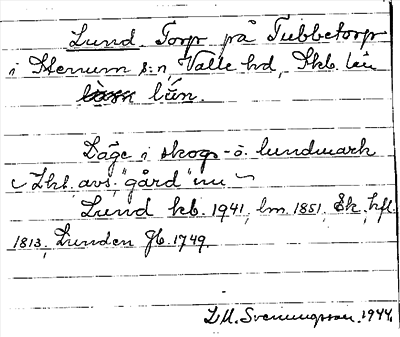 Lund. Torp på Tubbetorp
i Stenum s:n Valle hd, Skb. län
lŭn.
Läge i skogs- o. lundmark
Lkt. avs. "gård" nu
Lund kb. 1941, lm. 1851, Ek. kfl.
1813, Lunden Jb. 1749.
L.M. Svenungsson. 1944.